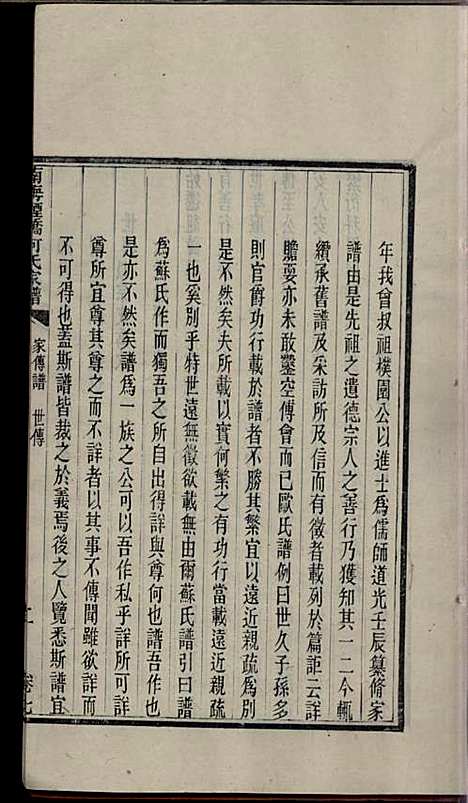 年我曾叔祖樸園公以進士爲儒師道光壬辰纂脩家
譜由是先祖之遺德宗人之善行乃獲知其一二今輒
纘承舊譜及采訪所及信而有徵者載列於篇詎云詳
贍要亦未敢鑿空傳會而已歐氏譜例曰世久子孫多
則官爵功行載於譜者不勝其繁宜以遠近親疏爲別
是不然矣夫所載以實何繁之有功行當載遠近親疏
一也奚别乎特世遠無徵欲載無由爾蘇氏譜引曰譜
爲蘇氏作而獨吾之所自出得詳與尊何也譜吾作也
是亦不然矣譜爲一族之公可以吾作私乎詳所可詳
尊所宜尊其尊之而不詳者以其事不傳聞雖欲詳而
不可得也蓋斯譜皆裁之於義焉後之人覽悉斯譜宜
南海煙橋何氏家譜
家傳譜 世傳
卷七